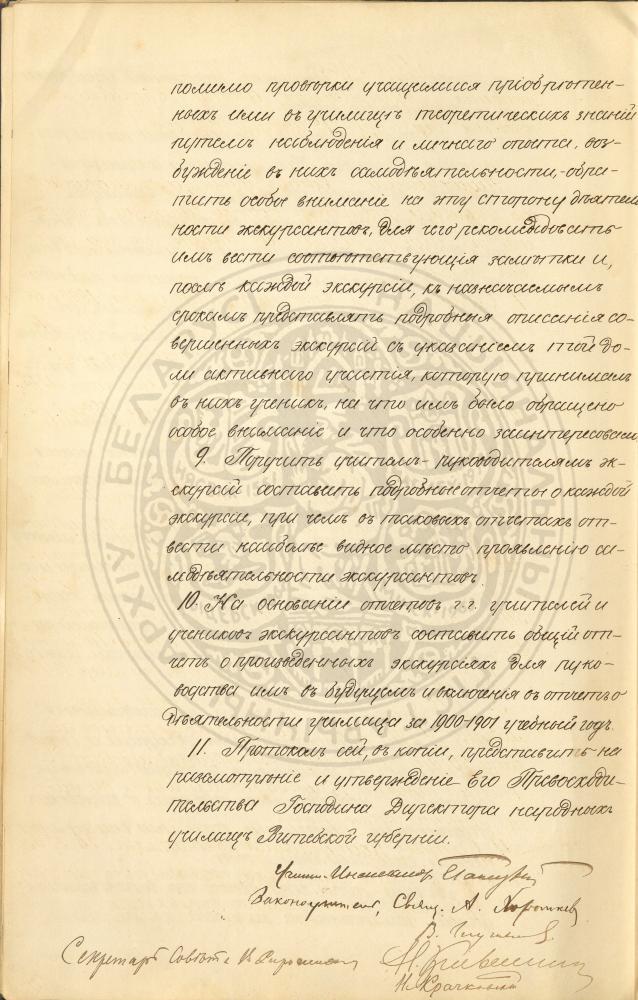 помимо провѣрки учащимися пріобрѣтен-
ныхъ ими въ училищѣ теоретическихъ знаній
путемъ наблюденія и личнаго опыта, воз-
бужденіе въ нихъ самодѣятельности,-обра-
тить особое вниманіе на эту сторону дѣятель
ности экскурсантовъ, для чего рекомендовать
имъ вести соотвѣтствующія замѣтки и,
послѣ каждой экскурсіи, къ назначаемымъ
срокамъ представлять подробныя описанія со-
вершенныхъ экскурсій съ указаніемъ той до-
ли активнаго участія, которую принималъ
въ нихъ ученикъ, на что имъ было обращено
особое вниманіе и что особенно заинтересовало
9. Поручить учителямъ-руководителямъ эк-
скурсій составить подробные отчеты о каждой
экскурсіи, при чемъ въ таковыхъ отчетахъ от-
вести наиболѣе видное мѣсто проявленію са-
модѣятельности экскурсантовъ.
10. На основаніи отчетовъ г.г. учителей и
учениковъ экскурсантовъ составить общій от-
четъ о произведенныхъ экскурсіяхъ для руко-
водства имъ въ будущемъ и включенія въ отчетъ о
дѣятельности училища за 1900-1901 учебный годъ.
11. Протоколъ сей, въ копіи, представить на
разсмотрѣніе и утвержденіе Его Превосходи-
тельства Господина Директора народныхъ
училищъ Витебской губерніи.
Учит.-Инспекторъ
Законоучитель, Свящ. А.
В.
Н.
Секретарь Совѣта
Н. Крачковскій
АРХІЎ БЕЛАРУСІ